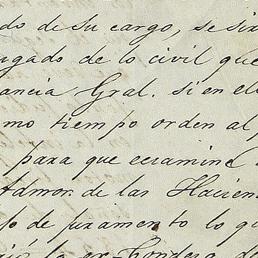 do de su cargo, se si
ugado de lo civil que
ancia Gral. si en el
mo tiempo orden al p
para que ecsamine
Admor. de las Hacien
o de juramento lo qu
la ex-Condesa de